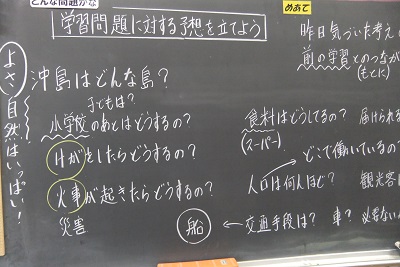 どんな問題かな
学習問題に対する予想を立てよう
めあて
昨日気づいた考え
前の学習とのつなが
(もとに)
よさ 自然はいっぱい!
沖島はどんな島?
子どもは?
小学校のあとはどうするの?
けがをしたらどうするの?
火事が起きたらどうするの?
災害
食料はどうしてるの? 届けられる
(スーパー)
どこで働いているの?
人口は何人ほど? 観光客
船 ← 交通手段は? 車? 必要ない